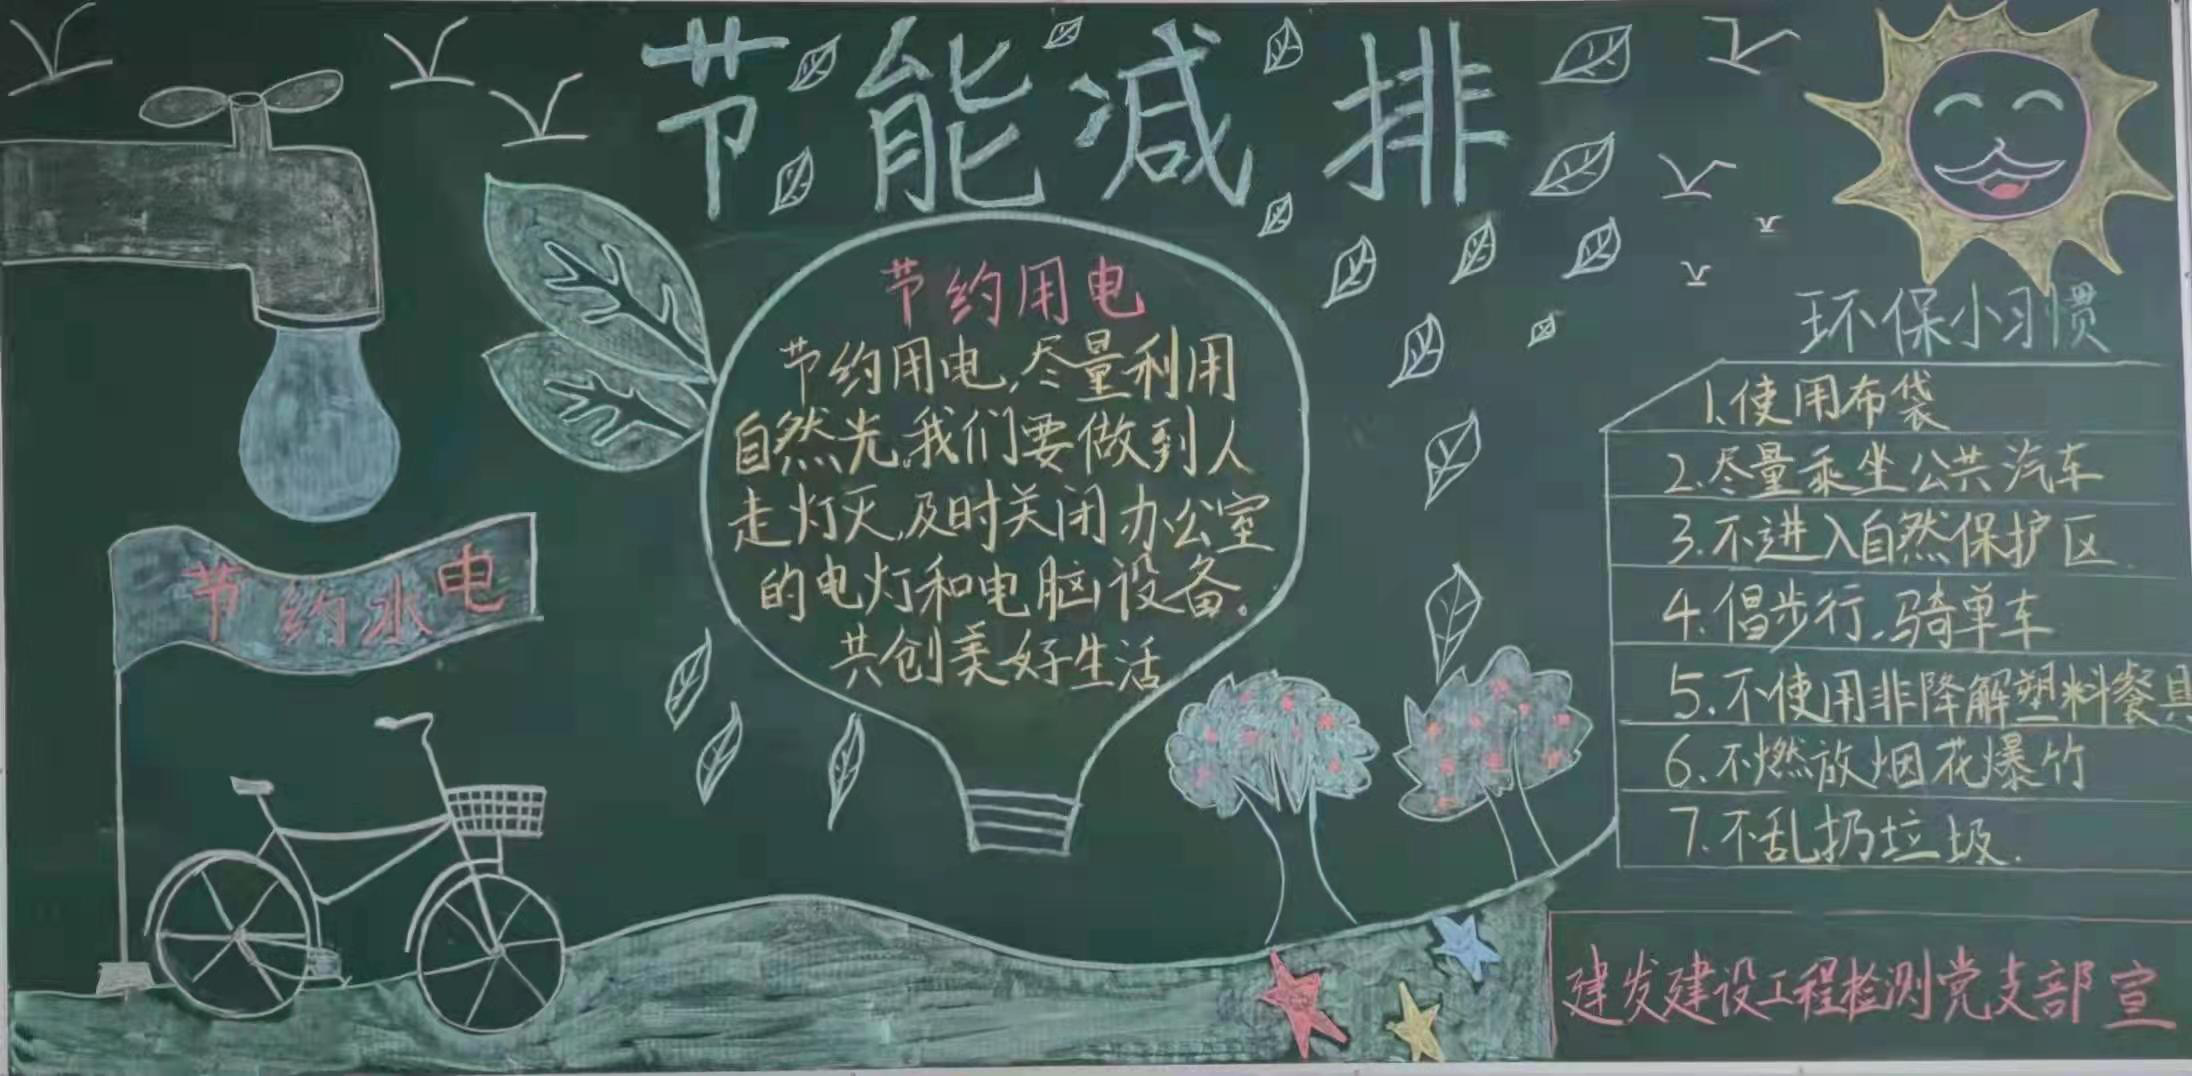 节能减排
节约用电
节约用电,尽量利用
自然光。我们要做到人
走灯灭,及时关闭办公室
的电灯和电脑设备。
共创美好生活
节约水电
环保小习惯
1、使用布袋
2.尽量乘坐公共汽车
3.不进入自然保护区.
4.倡步行、骑单车
5.不使用非降解塑料餐具
6.不燃放烟花爆竹
7.不乱扔垃圾.
建发建设工程检测党支部宣